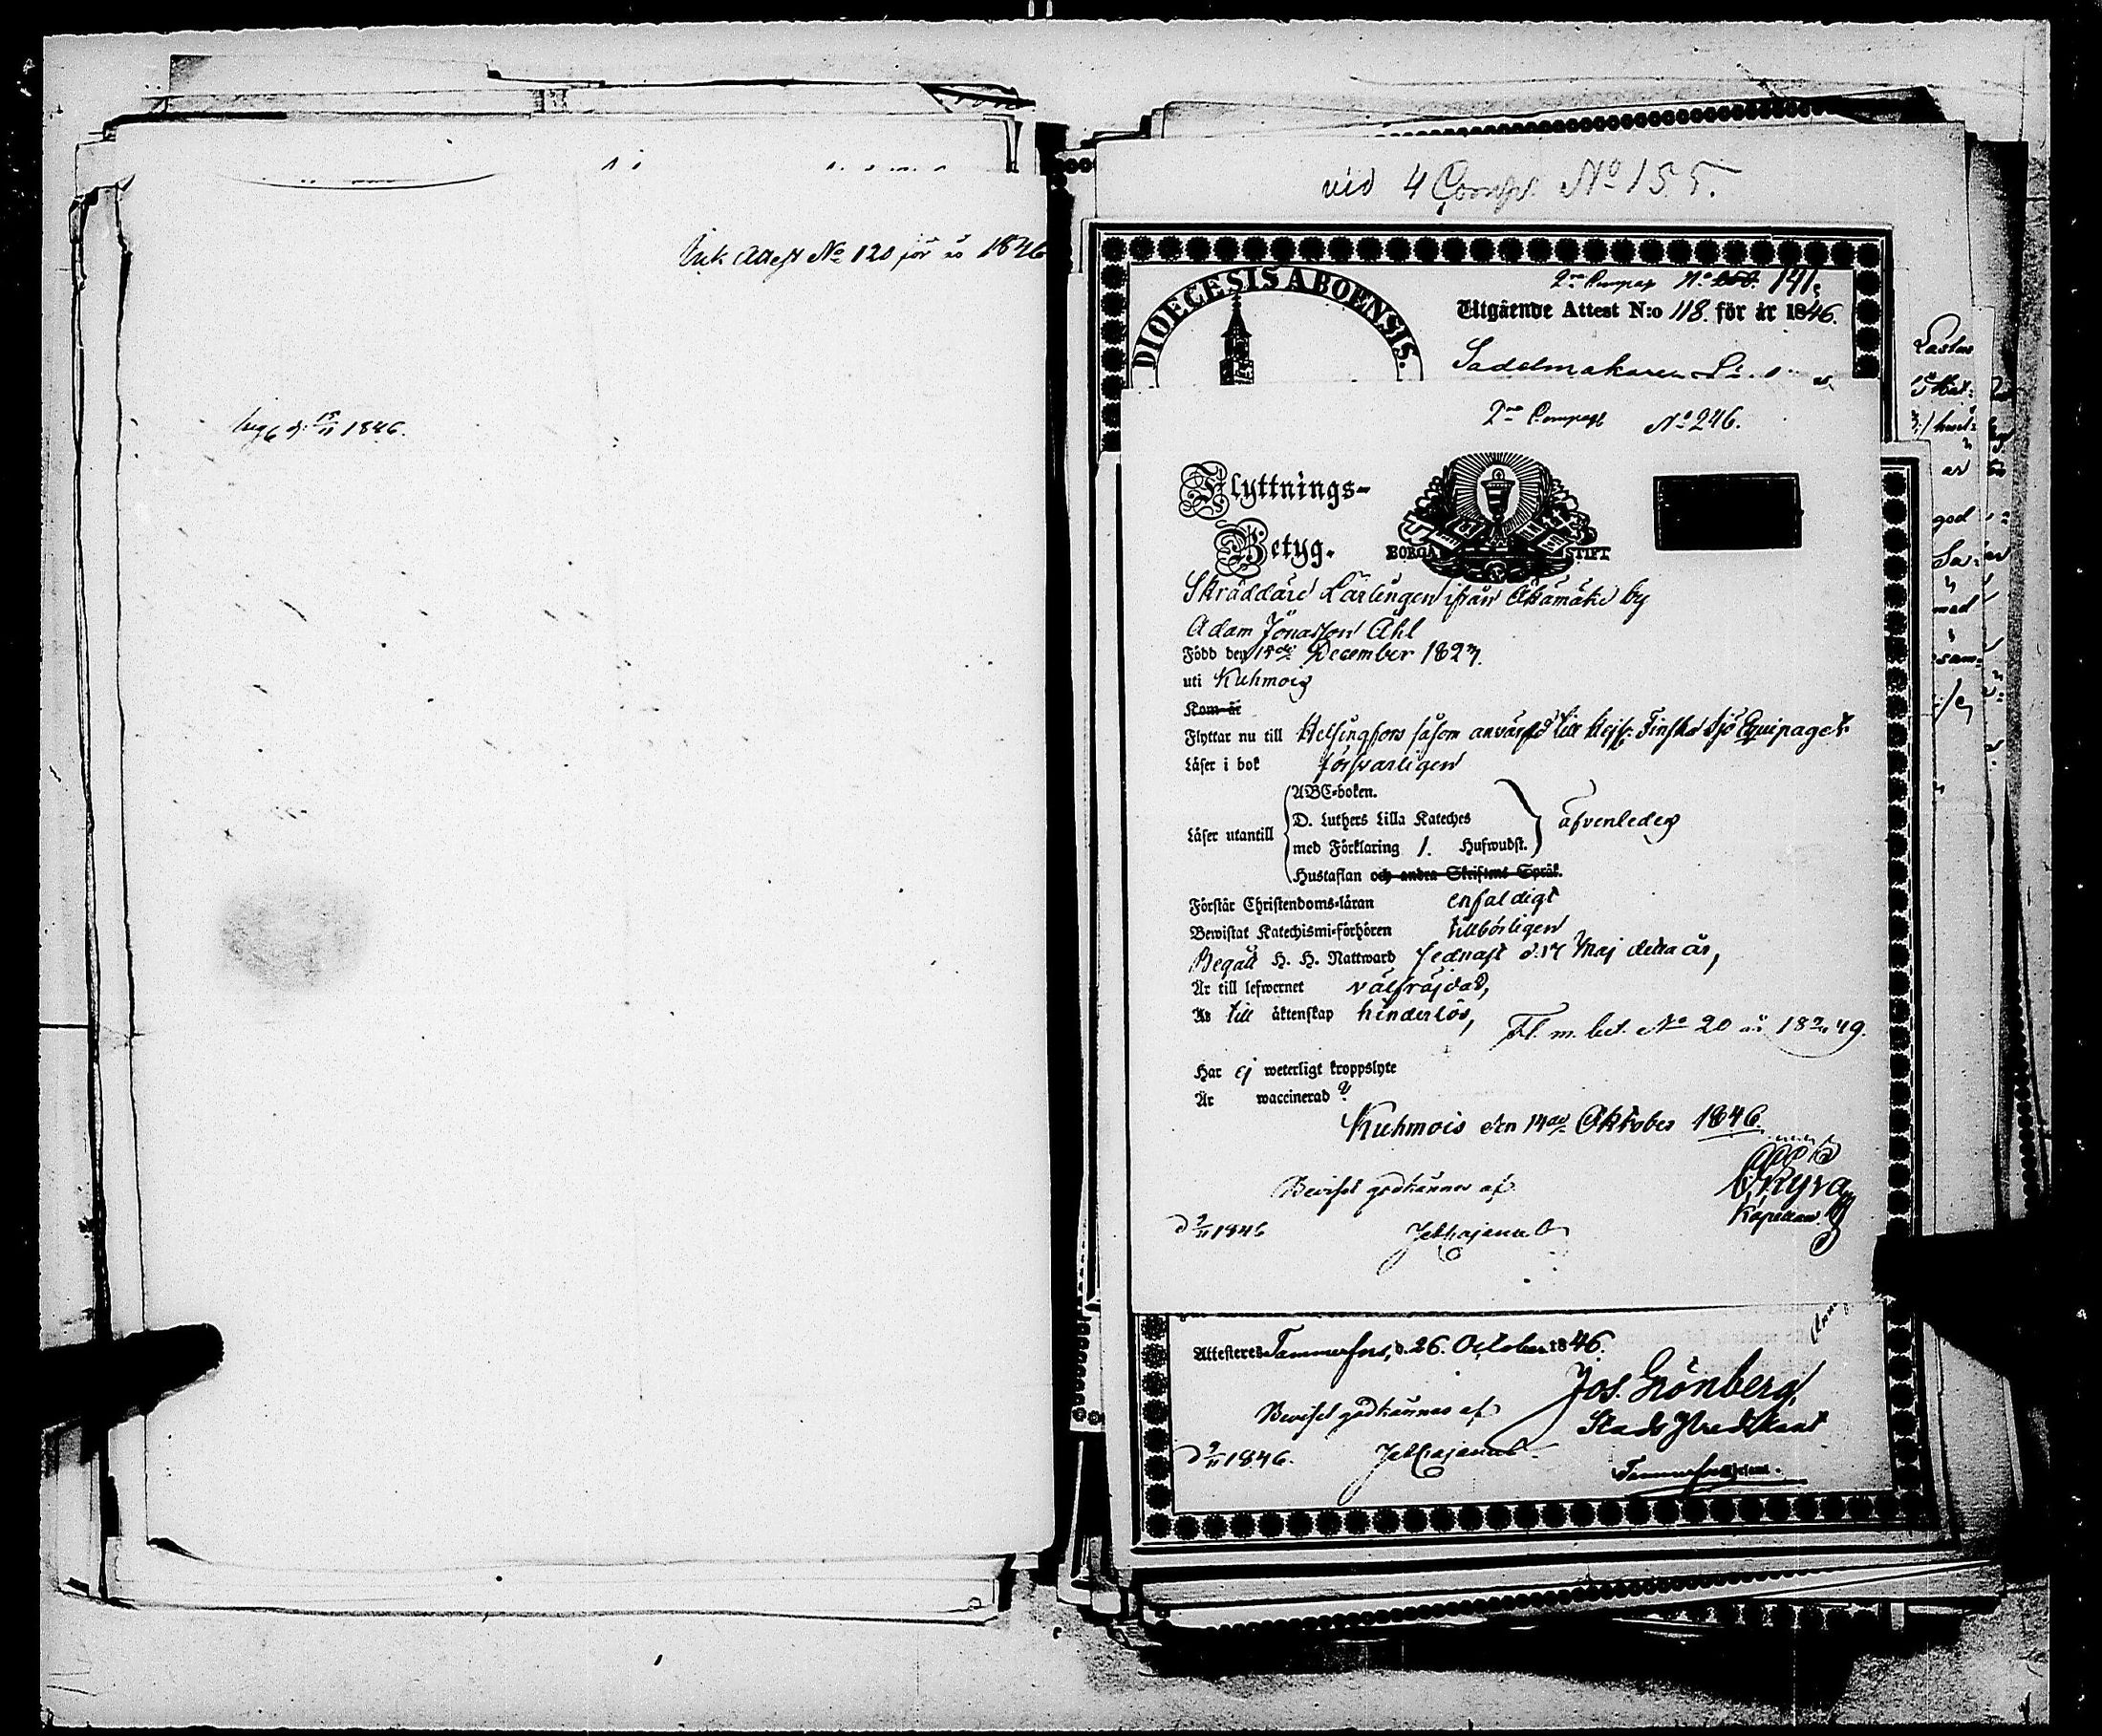 Ink Attest No 120 för år 1846
vid 4 Comp. No 155.
DIOECESIS ABOENSIS.
2ra Compag No 141
Utgående Attest N:o 118. för år 1846.
Sadelmakaren
2ra Compagt No 246.
Flyttnings-
Betyg.
BORGÅ STIFT
Skräddare Lärlingen ifrån by
Adam Jonasson Ahl
Född den 15de December 1827.
uti Kuhmois
Kom år
Flyttar nu till Helsingfors såsom till Kejs: Finska Sjö Equipaget
Läser i bok försvarligen
ABC-boken.
D. Luthers Lilla Kateches
Läser utantill äfvenledes
med Förklaring 1. Hufwudst.
Hustaflan och andra Skriftens Språk.
Förstår Christendoms-läran enfaldigt
Bewistat Katechismi-förhören tillbörligen
Begått H. H. Nattward sednast d. 17 Maj detta år,
Är till lefwernet välfräjdad,
Är till äktenskap hinderlös,
Fl. m. bet. No 20 49.
Har ej weterligt kroppslyte
Är waccinerad
Kuhmois den 14de Oktober 1846.
Beviset godkännes af
d 9/11 1846
Kapellan
Attesteres Tammerfors, d. 26. October 1846.
Jos. Grönberg
Stads Predikant
Beviset godkännes af
d 9/11 1846.
Tammerfors